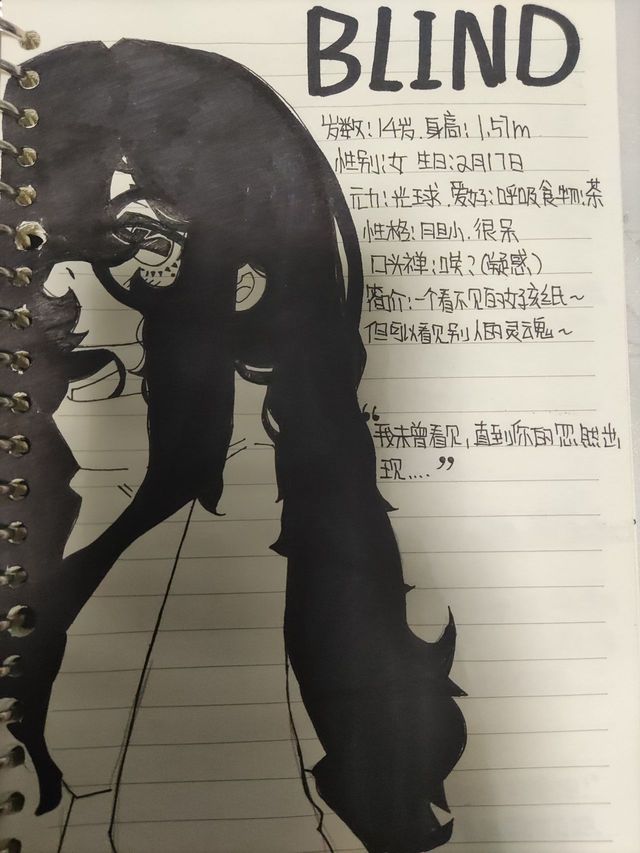 BLIND
岁数：14岁．身高：1.57m
性别：女 生日：2月17日
元力：光球．爱好：呼吸食物：茶
性格：胆小．很呆
口头禅：唉？（疑惑）
简介：一个看不见的女孩纸～
但可以看见别人的灵魂～
“我未曾看见，直到你的忽然出
现....”